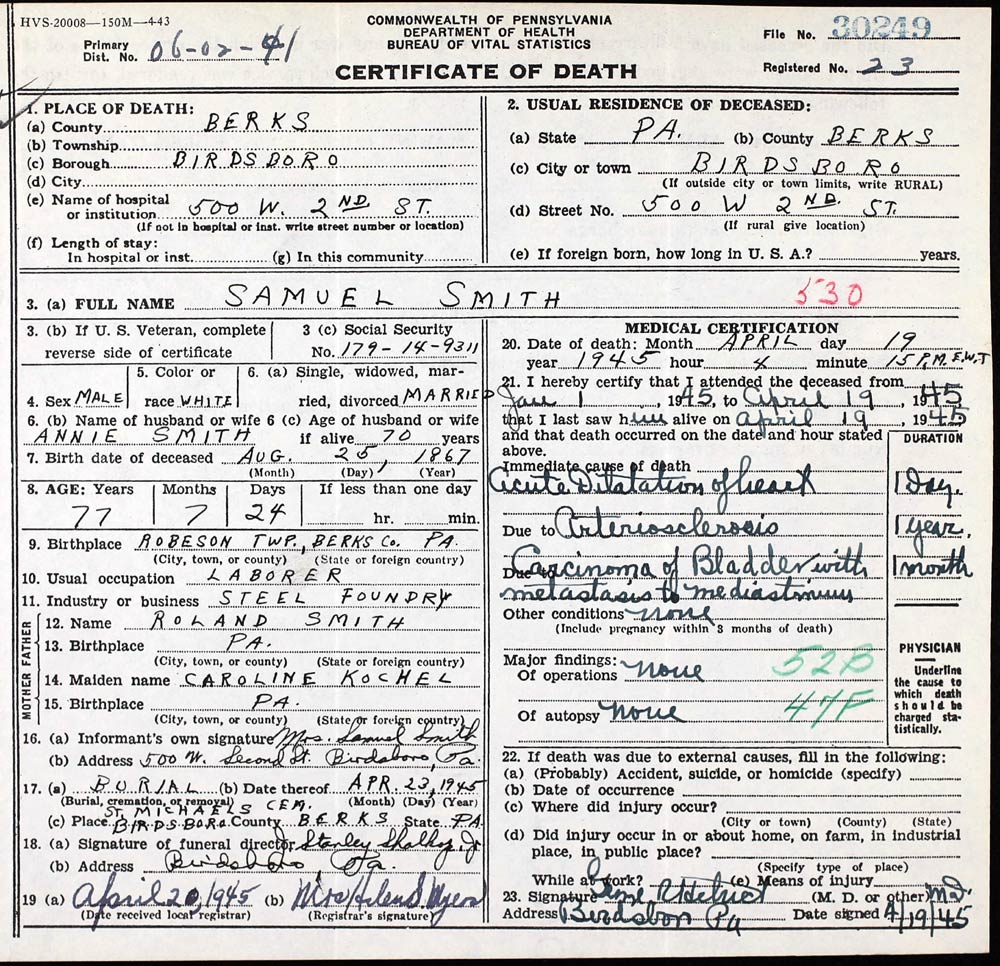 HVS-20008—150M—4-43
COMMONWEALTH OF PENNSYLVANIA
DEPARTMENT OF HEALTH
BUREAU OF VITAL STATISTICS
CERTIFICATE OF DEATH
Primary
Dist. No. 06-02-41
File No. 30249
Registered No. 23
1. PLACE OF DEATH:
(a) County BERKS
(b) Township
(c) Borough BIRDSBORO
(d) City
(e) Name of hospital
or institution 500 W. 2ND ST.
(If not in hospital or inst. write street number or location)
(f) Length of stay:
In hospital or inst. (g) In this community
2. USUAL RESIDENCE OF DECEASED:
(a) State PA. (b) County BERKS
(c) City or town BIRDSBORO
(If outside city or town limits, write RURAL)
(d) Street No. 500 W 2ND. ST.
(If rural give location)
(e) If foreign born, how long in U. S. A.? years.
3. (a) FULL NAME SAMUEL SMITH 530
3. (b) If U. S. Veteran, complete
reverse side of certificate
3 (c) Social Security
No. 179-14-9311
4. Sex MALE
5. Color or
race WHITE
6. (a) Single, widowed, mar-
ried, divorced MARRIED
6. (b) Name of husband or wife
ANNIE SMITH
6 (c) Age of husband or wife
if alive 70 years
7. Birth date of deceased AUG. 25, 1867
(Month) (Day) (Year)
8. AGE: Years Months Days If less than one day
77 7 24 hr. min.
9. Birthplace ROBESON TWP., BERKS CO. PA.
(City, town, or county) (State or foreign country)
10. Usual occupation LABORER
11. Industry or business STEEL FOUNDRY
FATHER
12. Name ROLAND SMITH
13. Birthplace PA.
(City, town, or county) (State or foreign country)
MOTHER
14. Maiden name CAROLINE KOCHEL
15. Birthplace PA.
(City, town, or county) (State or foreign country)
16. (a) Informant's own signature Mrs. Samuel Smith
(b) Address 500 W. Second St. Birdsboro, Pa.
17. (a) BURIAL (b) Date thereof APR. 23, 1945
(Burial, cremation, or removal) (Month) (Day) (Year)
ST. MICHAELS CEM.
(c) Place BIRDSBORO County BERKS State PA
18. (a) Signature of funeral director Stanley Jr
(b) Address Birdsboro Pa.
19 (a) April 20, 1945 (b) Mrs Helen S. Myers
(Date received local registrar) (Registrar's signature)
MEDICAL CERTIFICATION
20. Date of death: Month APRIL day 19
year 1945 hour 4 minute 15 P.M. E.W.T
21. I hereby certify that I attended the deceased from
Jan 1, 1945, to April 19, 1945
that I last saw him alive on April 19, 1945
and that death occurred on the date and hour stated
above.
DURATION
Immediate cause of death
Acute Dilatation of heart 1 Day.
Due to Arteriosclerosis 1 year,
Due to Carcinoma of Bladder with 1 month
metastasis to mediastinum
Other conditions none
(Include pregnancy within 3 months of death)
Major findings:
Of operations none 52B
47F
Of autopsy none
PHYSICIAN
Underline
the cause to
which death
should be
charged sta-
tistically.
22. If death was due to external causes, fill in the following:
(a) (Probably) Accident, suicide, or homicide (specify)
(b) Date of occurrence
(c) Where did injury occur?
(City or town) (County) (State)
(d) Did injury occur in or about home, on farm, in industrial
place, in public place?
(Specify type of place)
While at work? (e) Means of injury
23. Signature (M. D. or other) M.D.
Address Birdsboro Pa Date signed 4/19/45